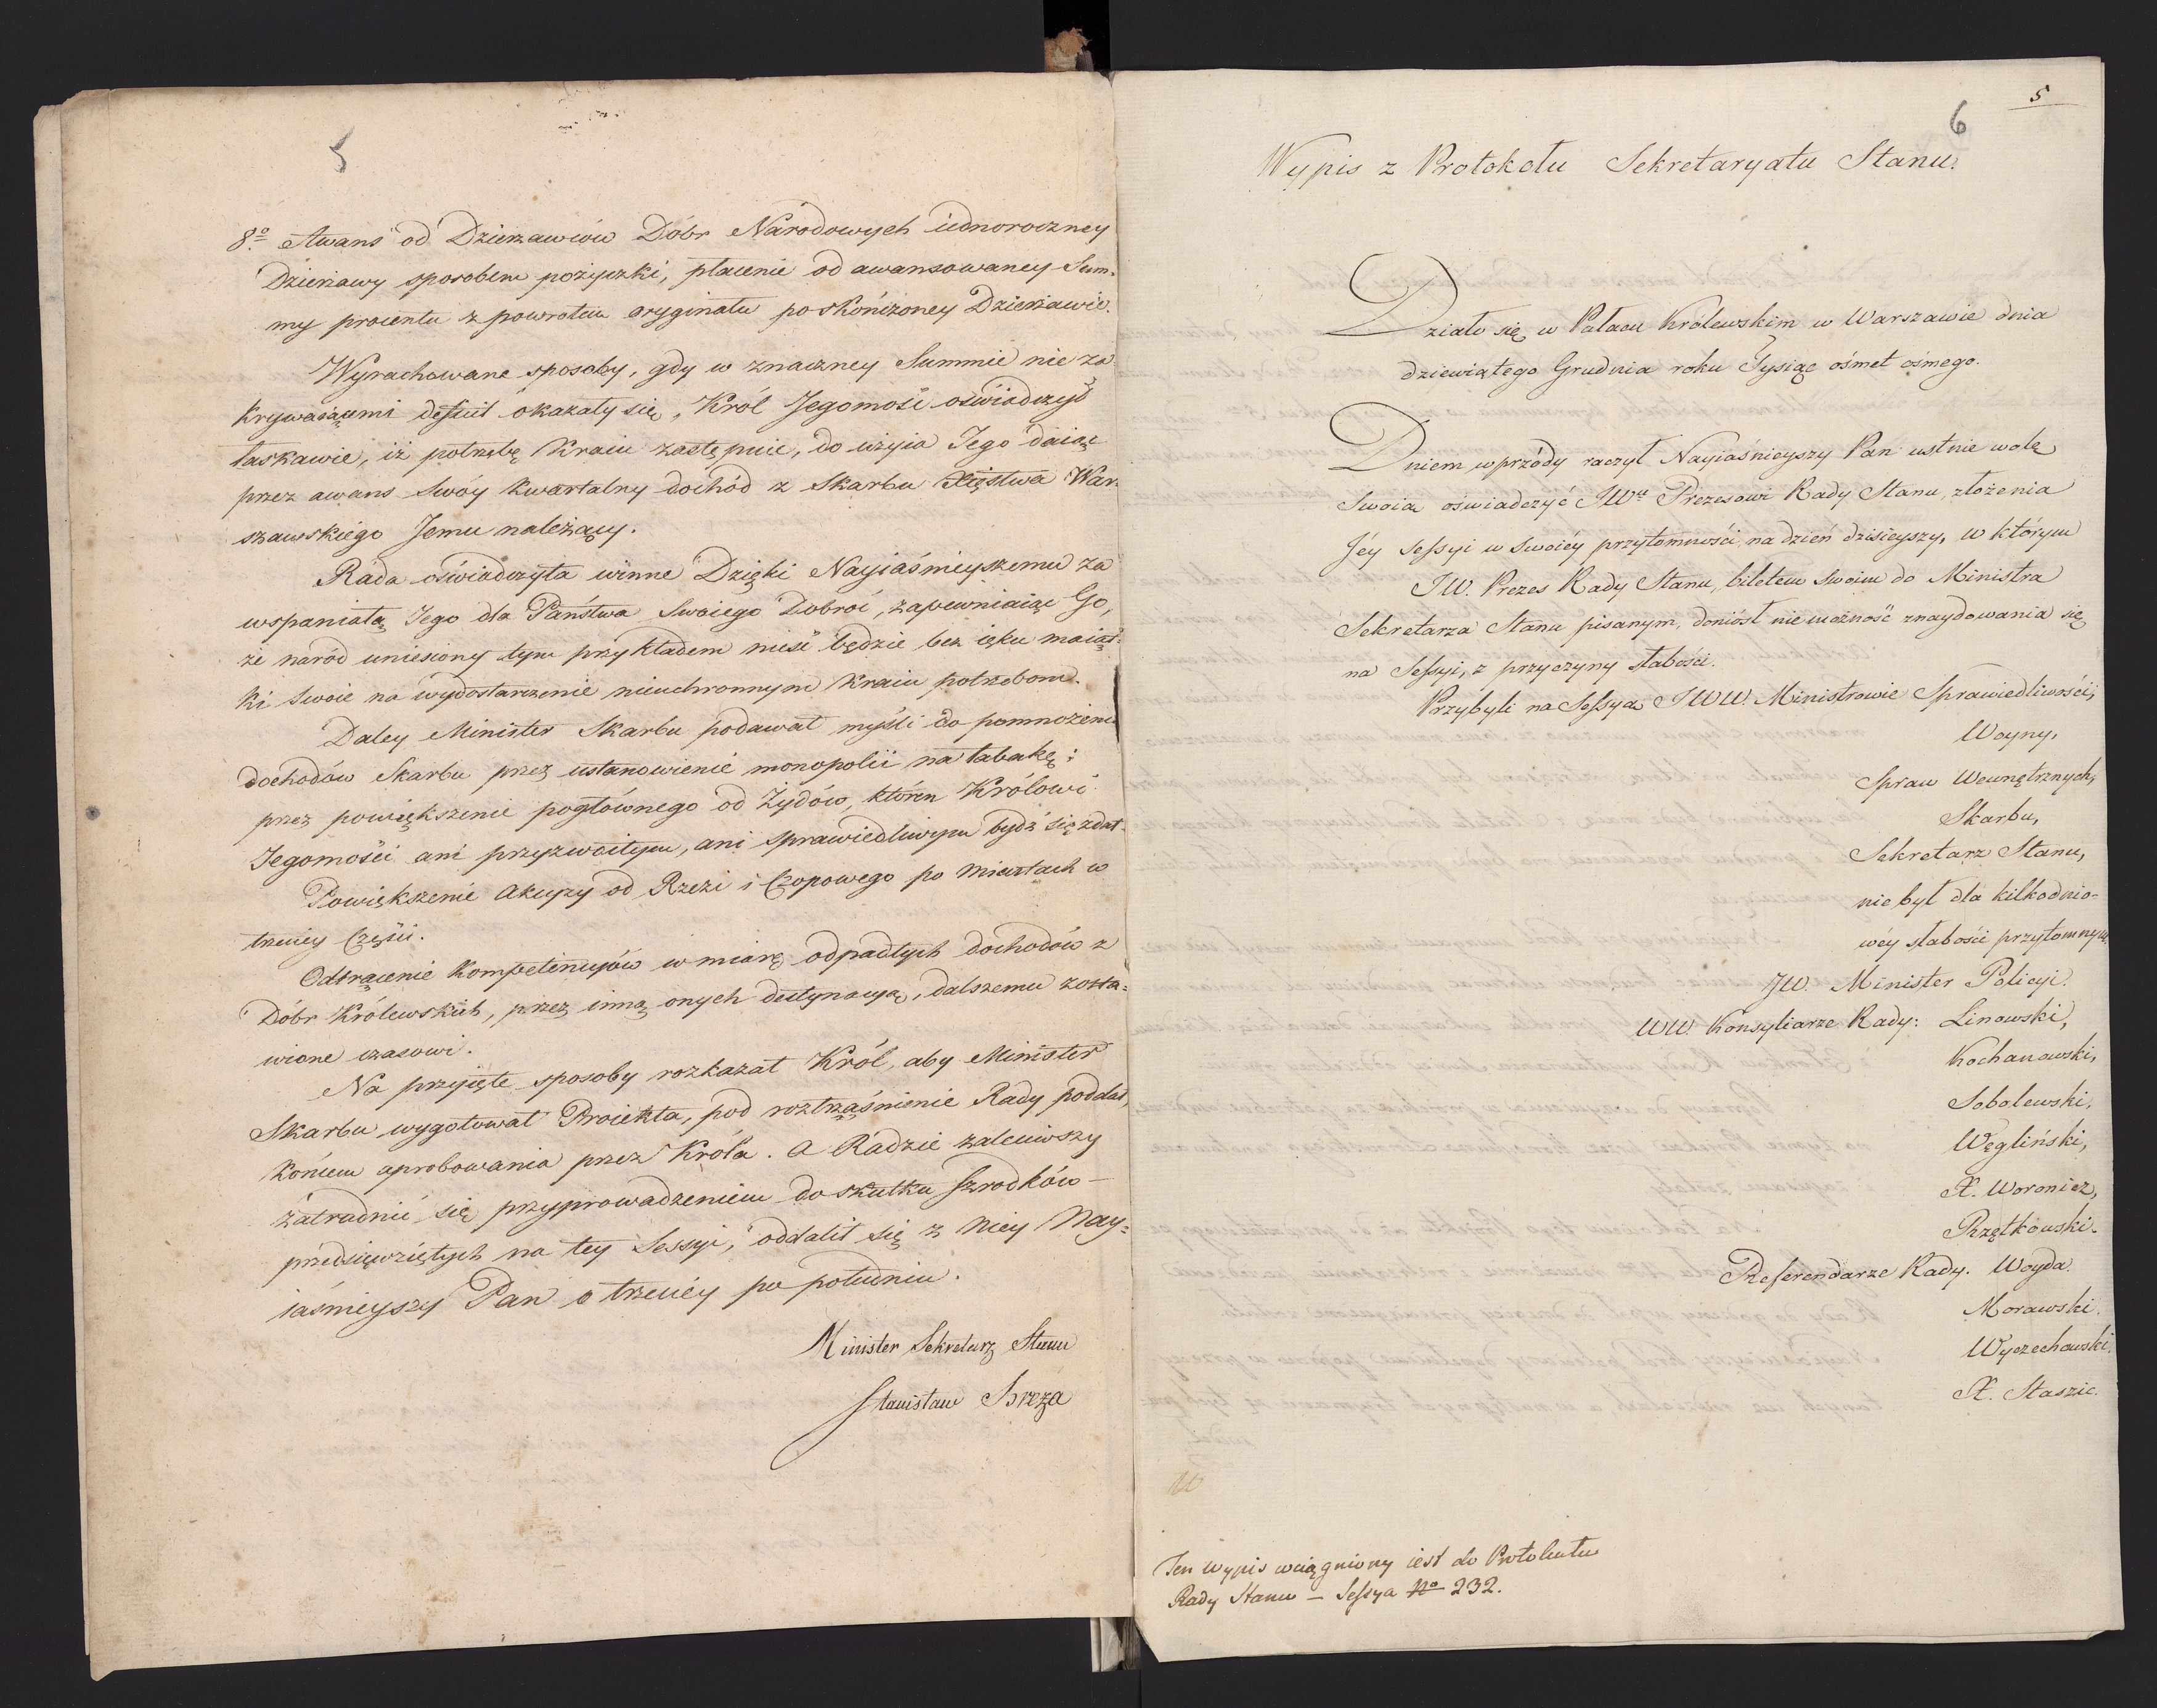 5
8º Awans od Dzierżawców Dóbr Narodowych iednoroczney
Dzierżawy sposobem pożyczki, płacenie od awansowaney Sum-
my procentu z powrotem oryginału po skończoney Dzierżawie.
Wyrachowane sposoby, gdy w znaczney Summie nie za
krywaiącemi deficit okazały się, Król Jegomość oświadczył
łaskawie, iż potrzebę Kraiu zastępuie, do użycia Jego daiąc
przez awans Swóy kwartalny dochód z Skarbu Xięstwa War-
szawskiego Jemu należący.
Rada oświadczyła winne Dzięki Nayiaśnieyszemu za
wspaniałą Jego dla Państwa Swoiego Dobroć, zapewniaiąc Go,
że naród uniesiony tym przykładem nieść będzie bez ięku maiąt-
ki Swoie na wydostarczenie nieuchronnym Kraiu potrzebom.
Daley Minister Skarbu podawał myśli do pomnożenia
dochodów Skarbu przez ustanowienie monopolii na tabakę;
przez powiększenie pogłównego od Żydów, któren Królowi
Jegomości ani przyzwoitym, ani sprawiedliwym bydź się zdał.
Powiększenie Akcyzy od Rzezi i Czopowego po miastach w
trzeciey Części.
Odtrącenie Kompetencyów w miarę odpadłych dochodów z
Dóbr Królewskich, przez inną onych destynacyą, dalszemu zosta-
wione czasowi.
Na przyięte sposoby rozkazał Król, aby Minister
Skarbu wygotował Proiekta, pod roztrząśnienie Rady poddał,
Końcem aprobowania przez Króla. A Radzie zaleciwszy
zatrudnić się przyprowadzeniem do skutku szrodków
przedsięwziętych na tey Sessyi, oddalił się z niey Nay-
iaśnieyszy Pan o trzeciéy po południu.
Minister Sekretarz Stanu
Stanisław Breza
5
6
Wypis z Protokołu Sekretaryatu Stanu.
Działo się w Pałacu Królewskim w Warszawie dnia
dziewiątego Grudnia roku Tysiąc ośmet ósmego.
Dniem wprzódy raczył Nayiaśnieyszy Pan ustnie wolę
Swoią oświadczyć JWu Prezesowi Rady Stanu, złożenia
Jéy Sessyi w Swoiéy przytomności, na dzień dzisieyszy, w którym
JW. Prezes Rady Stanu, biletem Swoim do Ministra
Sekretarza Stanu pisanym, doniósł niemożność znaydowania się
na Sessyi, z przyczyny słabości.
Przybyli na Sessyą JWW. Ministrowie Sprawiedliwości,
Woyny,
Spraw Wewnętrznych,
Skarbu,
Sekretarz Stanu,
nie był dla kilkodnio-
wéy słabości przytomnym
JW. Minister Policyi.
WW. Konsyliarze Rady: Linowski,
Kochanowski,
Sobolewski,
Węgliński,
X. Woronicz,
Rzętkowski.
Referendarze Rady. Woyda.
Morawski.
Wyczechowski.
X. Staszic.
Ten wypis wciągniony iest do Protokułu
Rady Stanu — Sessya No 232.